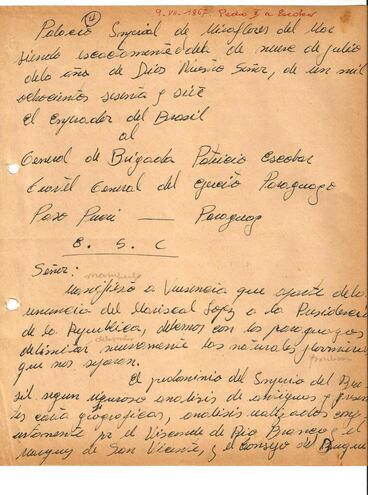 4
9-VII-1867. Pedro II a Escobar
Palacio Imperial de Miraflores del Mar
siendo exactamente del de nueve de julio
dela año de Dios Nuestro Señor, de un mil
ochocientos sesenta y siete
El Emperador del Brasil
al
General de Brigada Patricio Escobar
Cuartel General del Ejercito Paraguayo
Paso Pucú — Paraguay
B. S. C
Señor:
manifiesto
Manifiesto a Vuesencia que aparte de la
renuncia del Mariscal Lopez a la Presidencia
de la Republica, debemos con los paraguayos
delimitar nuevamente las naturales fronteras
que nos separan.
fronteras
El predominio del Imperio del Bra
sil segun riguroso analisis de antiguas y
cartas geograficas, analisis
por el Visconde de Rio Branco y el
Marques de San Vicente, y el Consejo de